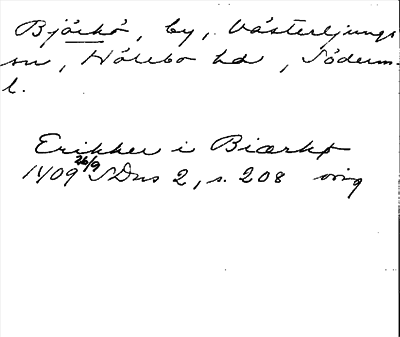 Björkö, by, Västerljungs
sn, Hölebo hd, Söderm-
l.
Erikker i Biærkø
1409 26/9 SDns 2, s. 208 orig